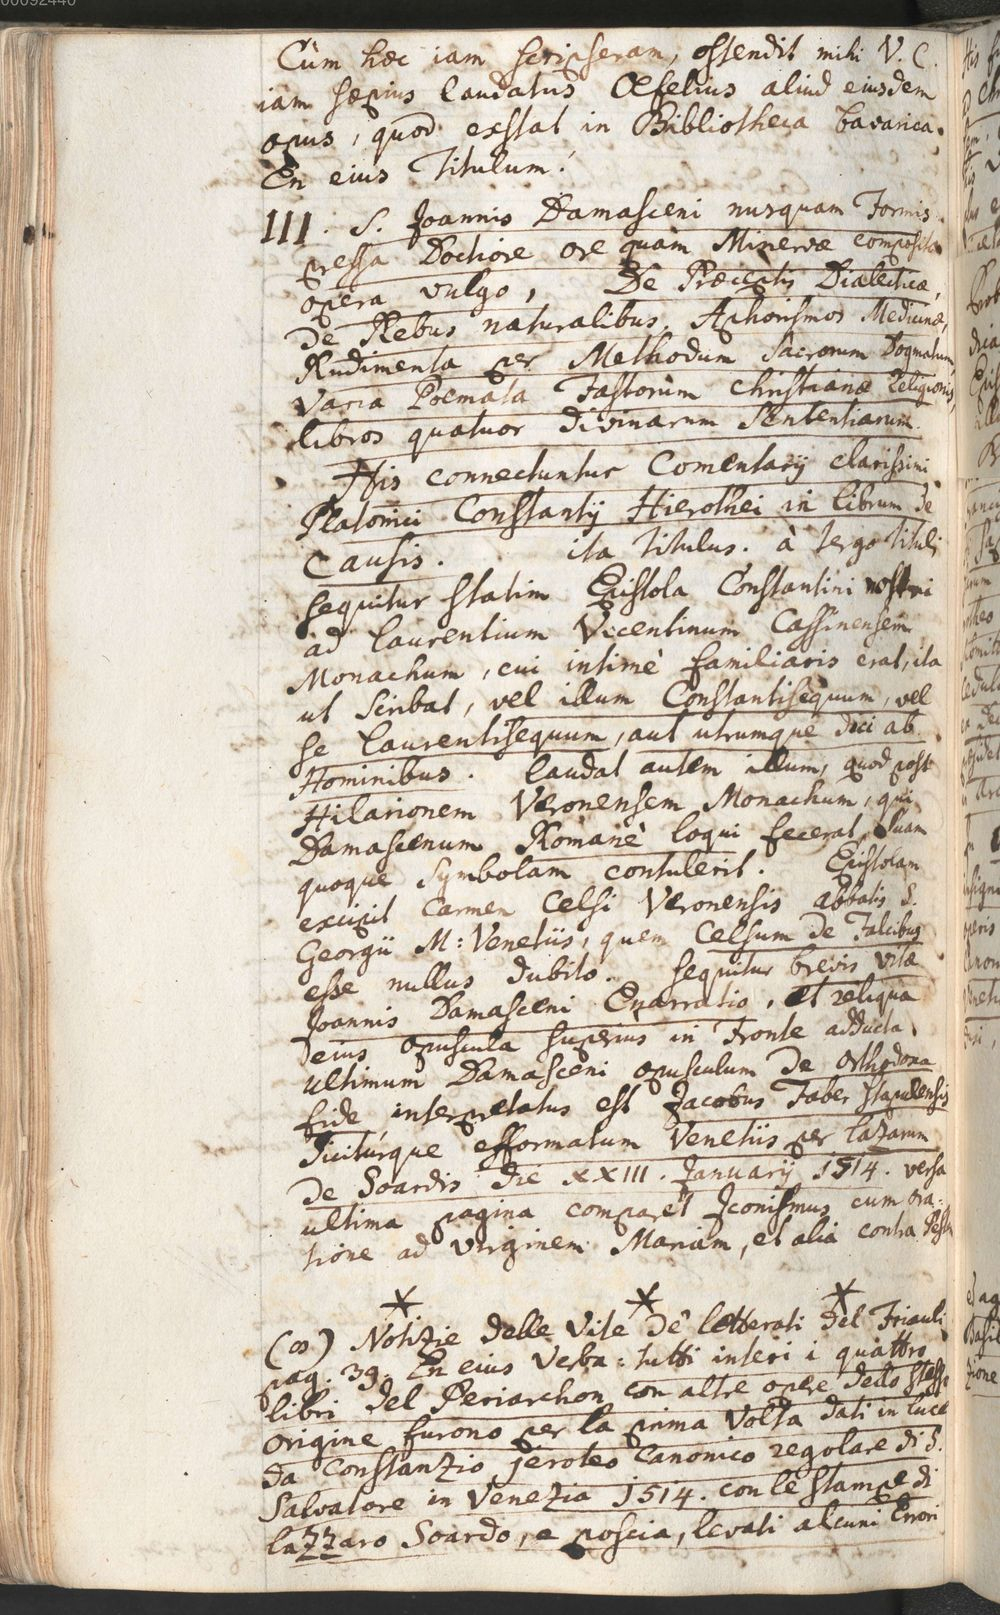 00092440
Cùm hæc iam scripseram, ostendit mihi V. C.
iam sæpius laudatus Œfelius aliud eiusdem
opus, quod exstat in Bibliotheca bavarica.
En eius Titulum!
III. S. Joannis Damasceni nusquam Formis
pressa Doctiore ore quàm Minervæ composita
opera vulgo, De Præceptis Dialecticæ,
de Rebus naturalibus, Aphorismos Medicinæ,
Rudimenta per Methodum Sacrorum Dogmatum
Varia Poemata Fastorùm Christianæ religionis,
libros quatuor divinarum Sententiarum.
His connectuntur Comentarij clarissimi
Platonici Constantij Hierothei in librum de
Causis. ita titulus. à tergo tituli
sequitur statim Epistola Constantini nostri
ad laurentium Vicentinum Cassinensem
Monachum, cui intimè familiaris erat, ita
ut scribat, vel illum Constantisequum, vel
se laurentisequum, aut utrumque dici ab
Hominibus. laudat autem illum, quod post
Hilarionem Veronensem Monachum, qui
Damascenum Romanè loqui fecerat, suam
quoque Symbolam contulerit. Epistolam
excipit Carmen Celsi Veronensis abbatis S.
Georgii M: Venetiis, quem Celsum de Falcibus
esse nullus dubito. sequitur brevis vitæ
Joannis Damasceni Enarratio, et reliqua
eius opuscula superius in Fronte adducta.
ultimum Damasceni opusculum De orthodoxa
fide interpretatus est Jacobus Faber Stapulensis
diciturque efformatum Venetiis per lazarum
de Soardis die XXIII. Januarij 1514. versa
ultima pagina comparet Iconismus cum ora-
tione ad virginem Mariam, et alia contra
* * *
(∞) Notizie delle vite dè letterati del Friauli
pag. 39. En eius verba: tutti interi i quattro
libri del Periarchon con altre opere dello stesso
origine furono per la prima volta dati in luce
da Constanzio jeroteo Canonico regolare di S.
Salvatore in Venezia 1514. con le stampe di
lazzaro Soardo, e poscia, levati alcuni Errori